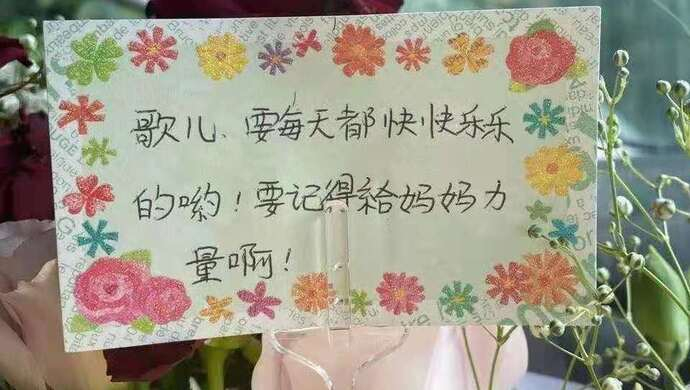 歌儿、要每天都快快乐乐
的哟！要记得给妈妈力
量啊！